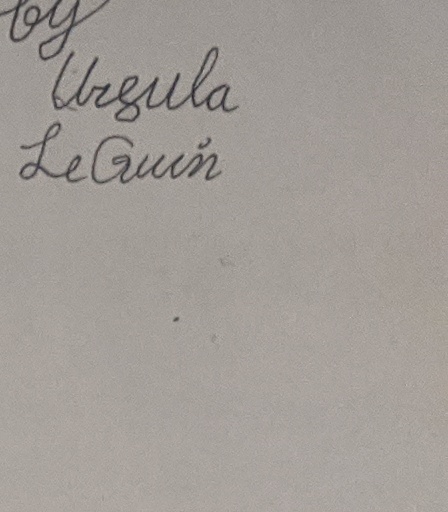 by
Ursula
Le Guin